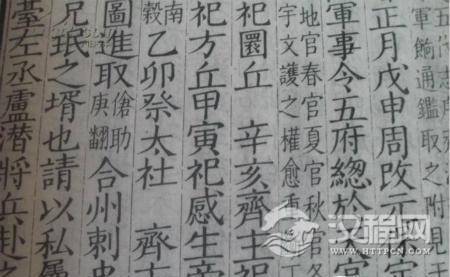 軍餉通鑑取之附見于
正月戊申周改元
軍事令五府總於
地官春官夏官秋官
宇文護之權愈重
祀圜丘 辛亥齊主祀
祀方丘甲寅祀感生帝
南
穀
乙卯祭太社 齊
圖進取
傖助
庚翻
合州刺史
兄珉之壻也請以私屬
臺左丞盧潛將兵赴之
汉程网
HTTPCN.COM